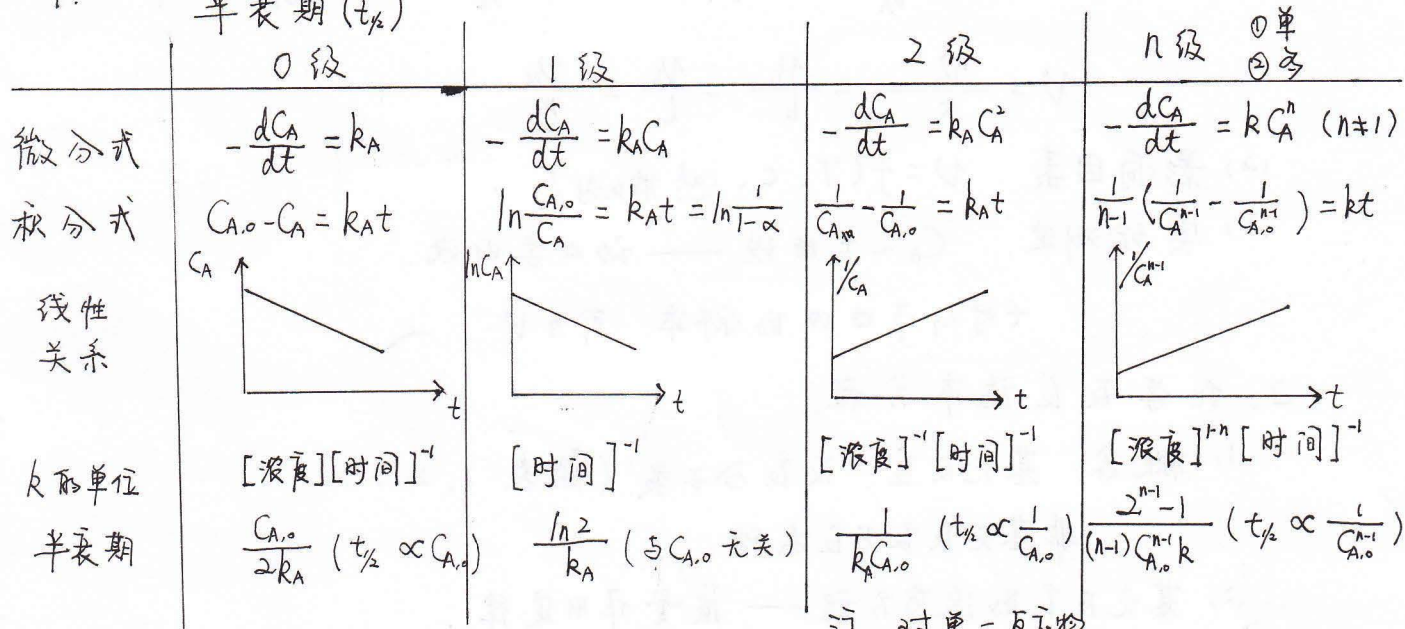 半衰期 (t½)
0级 1级 2级 n级 ①单
②多
微分式 -dC_A/dt = k_A -dC_A/dt = k_A C_A -dC_A/dt = k_A C_A² -dC_A/dt = k C_A^n (n≠1)
积分式 C_A,0 - C_A = k_A t ln C_A,0/C_A = k_A t = ln 1/(1-α) 1/C_A - 1/C_A,0 = k_A t 1/(n-1) (1/C_A^(n-1) - 1/C_A,0^(n-1)) = kt
C_A lnC_A 1/C_A 1/C_A^(n-1)
线性
关系
t t t t
k的单位 [浓度][时间]⁻¹ [时间]⁻¹ [浓度]⁻¹[时间]⁻¹ [浓度]^(1-n) [时间]⁻¹
半衰期 C_A,0/2k_A (t½ ∝ C_A,0) ln2/k_A (与C_A,0 无关) 1/(k_A C_A,0) (t½ ∝ 1/C_A,0) (2^(n-1) - 1)/((n-1) C_A,0^(n-1) k) (t½ ∝ 1/C_A,0^(n-1))
对单一反应物